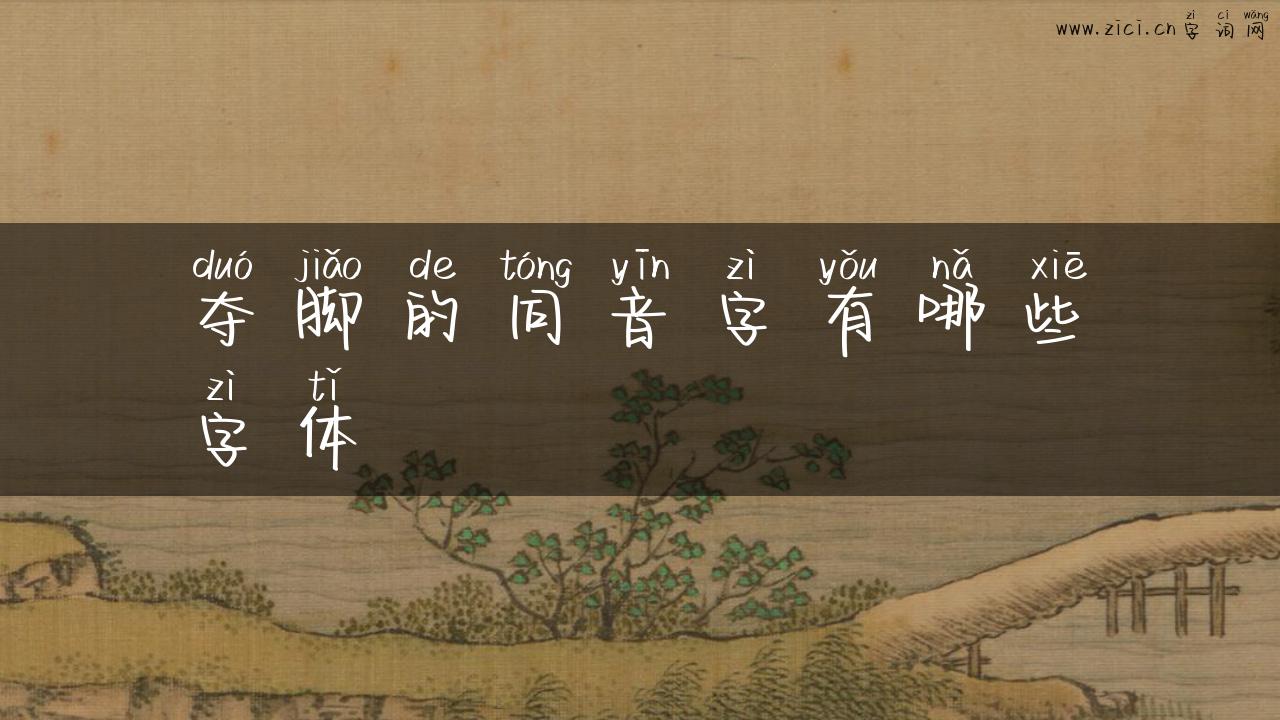 zì cí wǎng
www.zici.cn 字 词 网
duó jiǎo de tóng yīn zì yǒu nǎ xiē
夺 脚 的 同 音 字 有 哪 些
zì tǐ
字 体